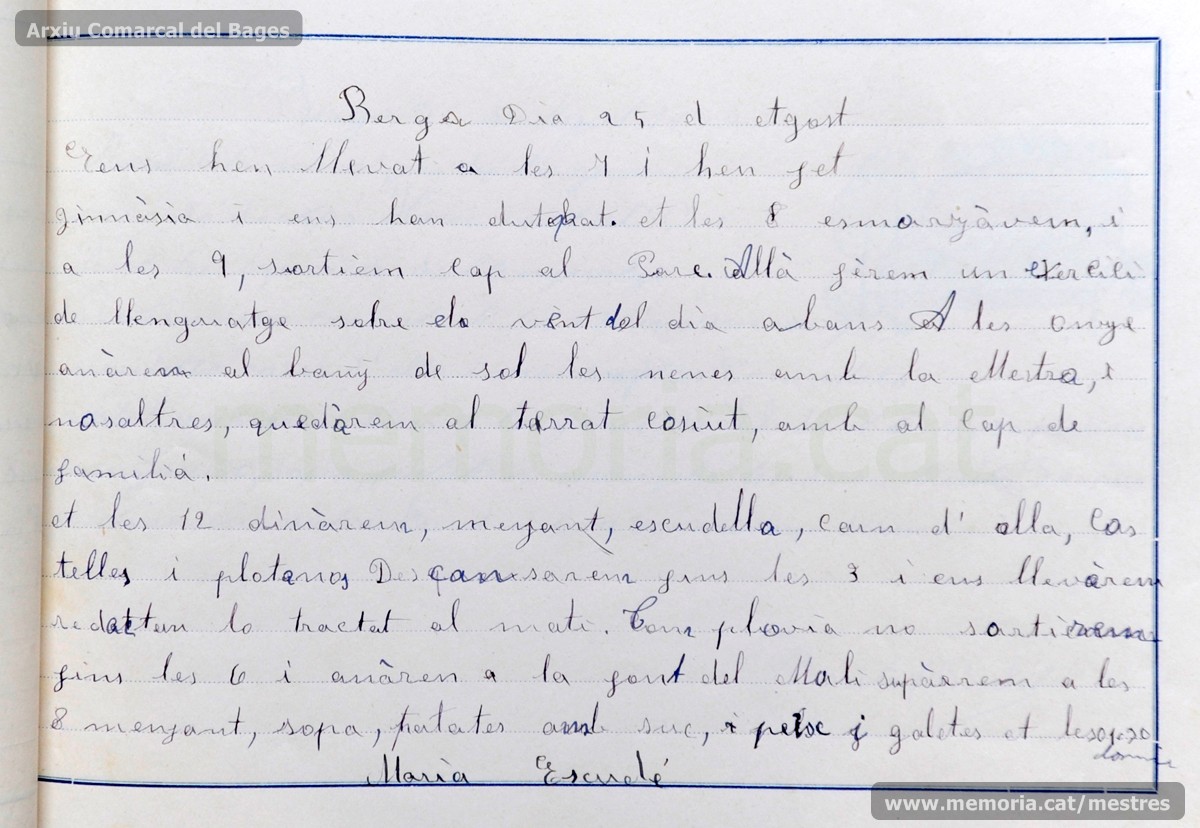 Arxiu Comarcal del Bages
Berga Dia 25 d Agost
Eens hen llevat a les 7 i hen fet
gimnàsia i ens han dutxat. A les 8 esmorzàvem, i
a les 9, sortiem cap al Parc. Allà férem un exercici
de llenguatge sobre els vent del dia abans A les onze
anàrem al bany de sol les nenes amb la Mestra, i
nosaltres, quedàrem al terrat cosint, amb al Cap de
familiá.
A les 12 dinàrem, menjant, escudella, carn d' olla, Cos
telles i platanos Descansarem fins les 3 i ens llevàrem
redactan lo tractat al mati. Com plovia no sortirem
fins les 6 i anàren a la font del Moli supàrrem a les
8 menjant, sopa, patates amb suc, i peix i galetes A les
dormir
Maria Escudé
memoria.cat
www.memoria.cat/mestres